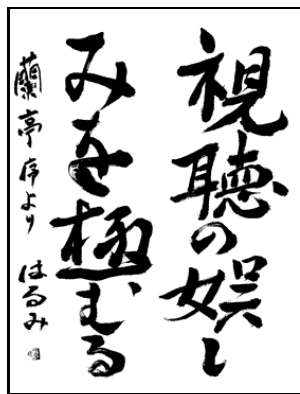 視聴の娯し
みを極むる
蘭亭序より はるみ